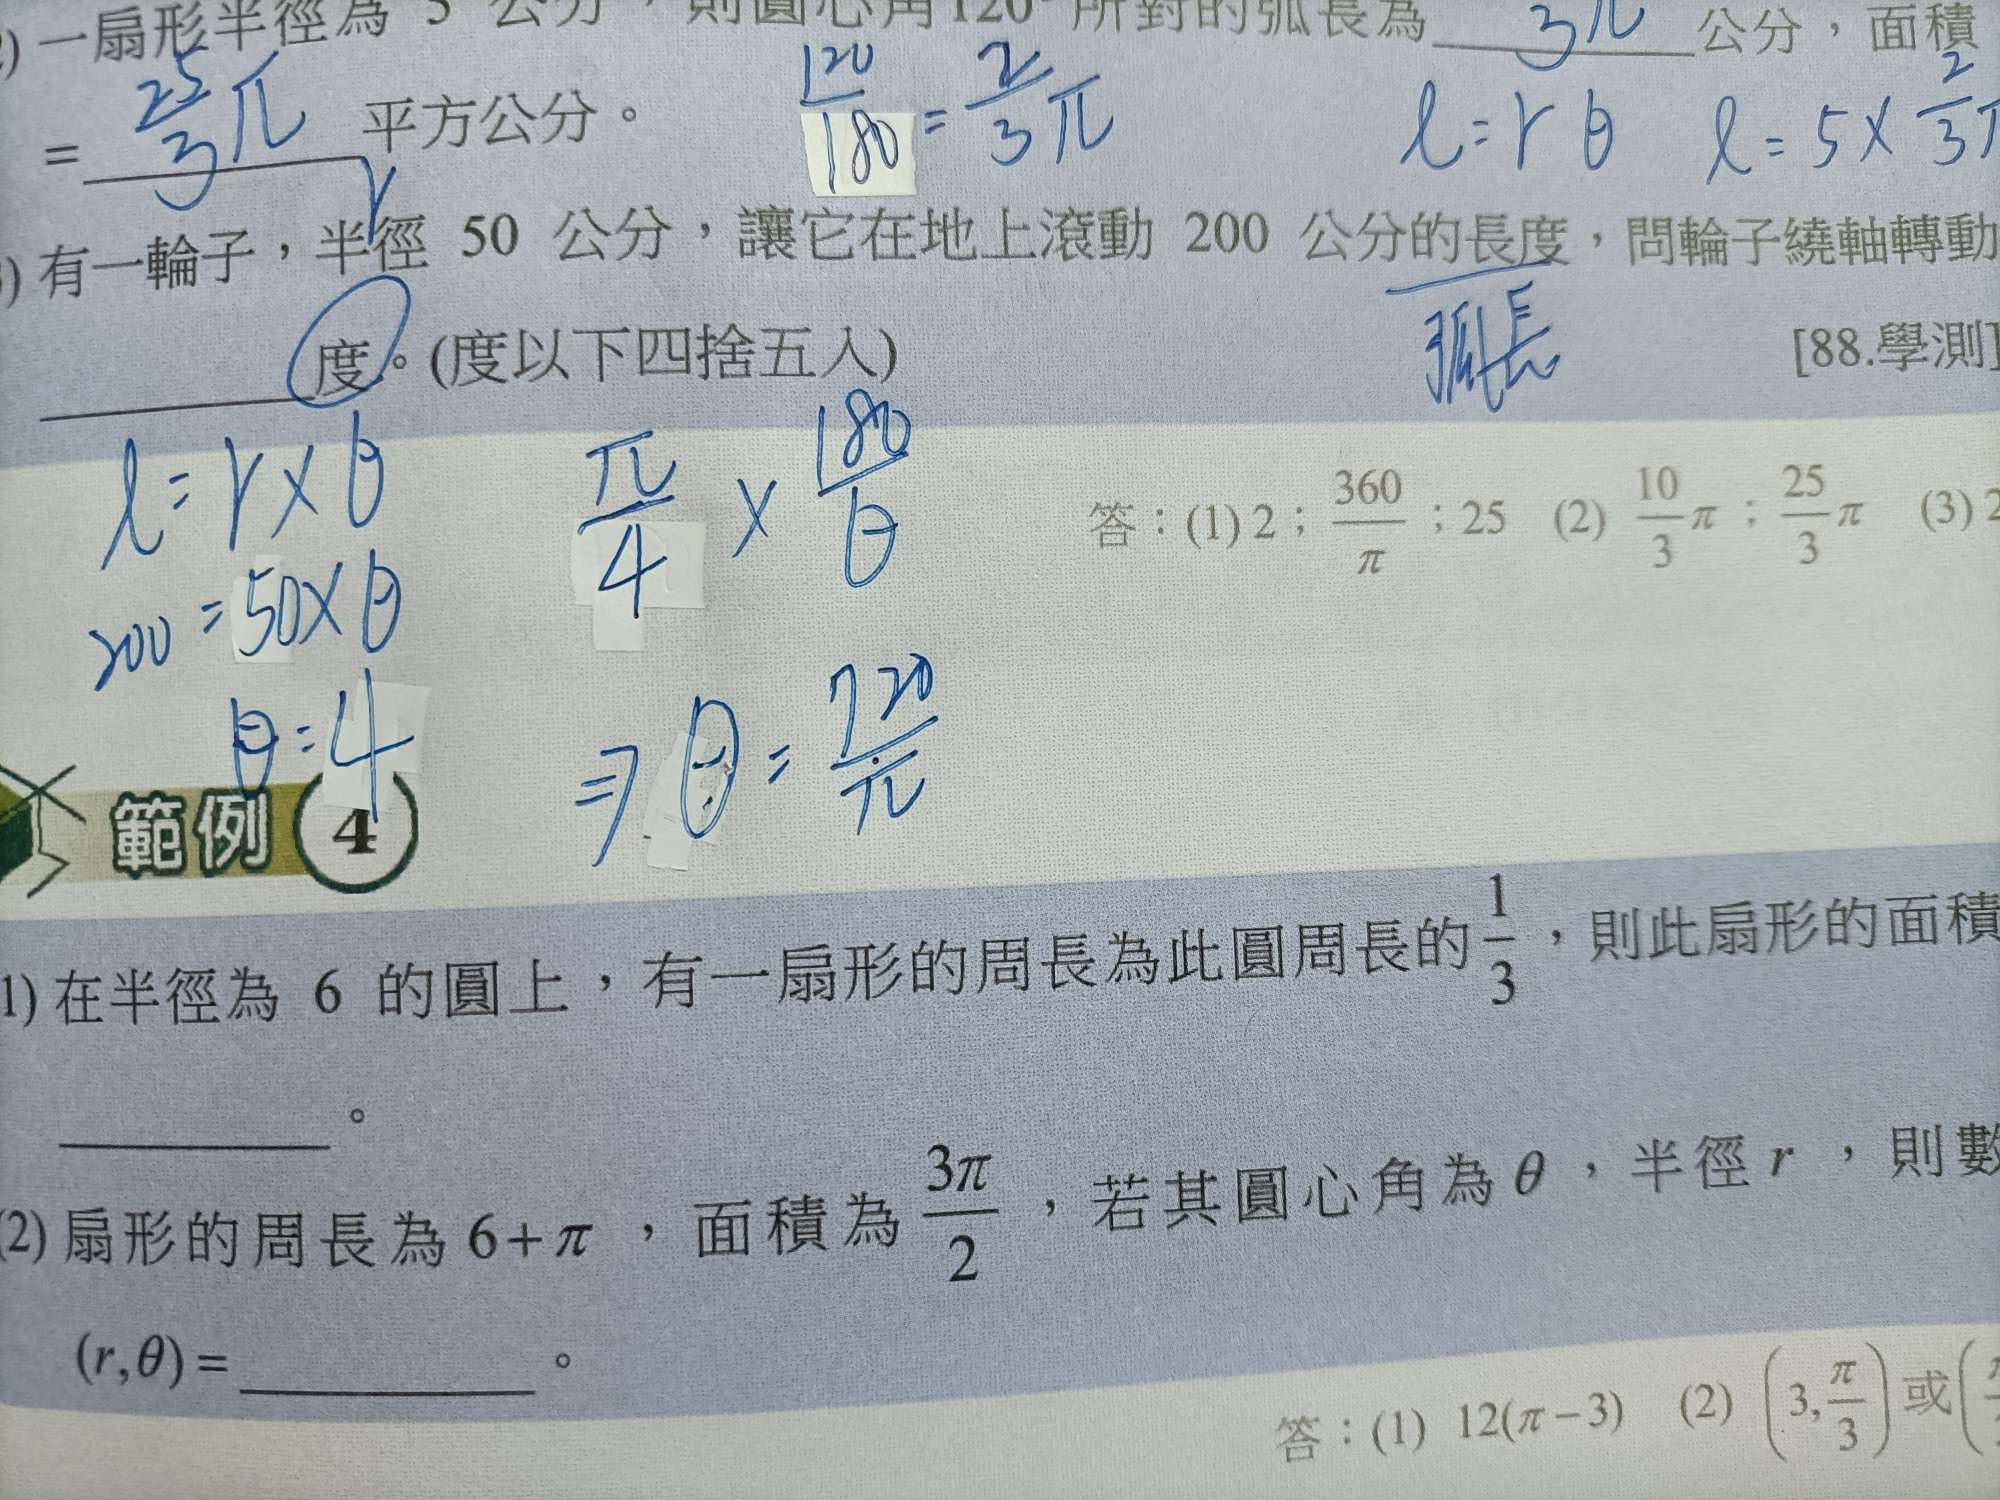 2) 一扇形半徑為 5 公分，則圓心角120°所對的弧長為 3π 公分，面積
= 25/3 π 平方公分。 120/180 = 2/3 π l=rθ l=5×2/3π
r
3) 有一輪子，半徑 50 公分，讓它在地上滾動 200 公分的長度，問輪子繞軸轉動
弧長
度。(度以下四捨五入) [88.學測]
l=r×θ π/4 × 180/θ
答：(1) 2；360/π；25 (2) 10/3 π；25/3 π (3) 2
200=50×θ
θ=4 ⇒ θ=720/π
範例 4
1) 在半徑為 6 的圓上，有一扇形的周長為此圓周長的 1/3，則此扇形的面積
。
(2) 扇形的周長為 6+π，面積為 3π/2，若其圓心角為 θ，半徑 r，則數
(r,θ)= 。
答：(1) 12(π−3) (2) (3, π/3) 或 (